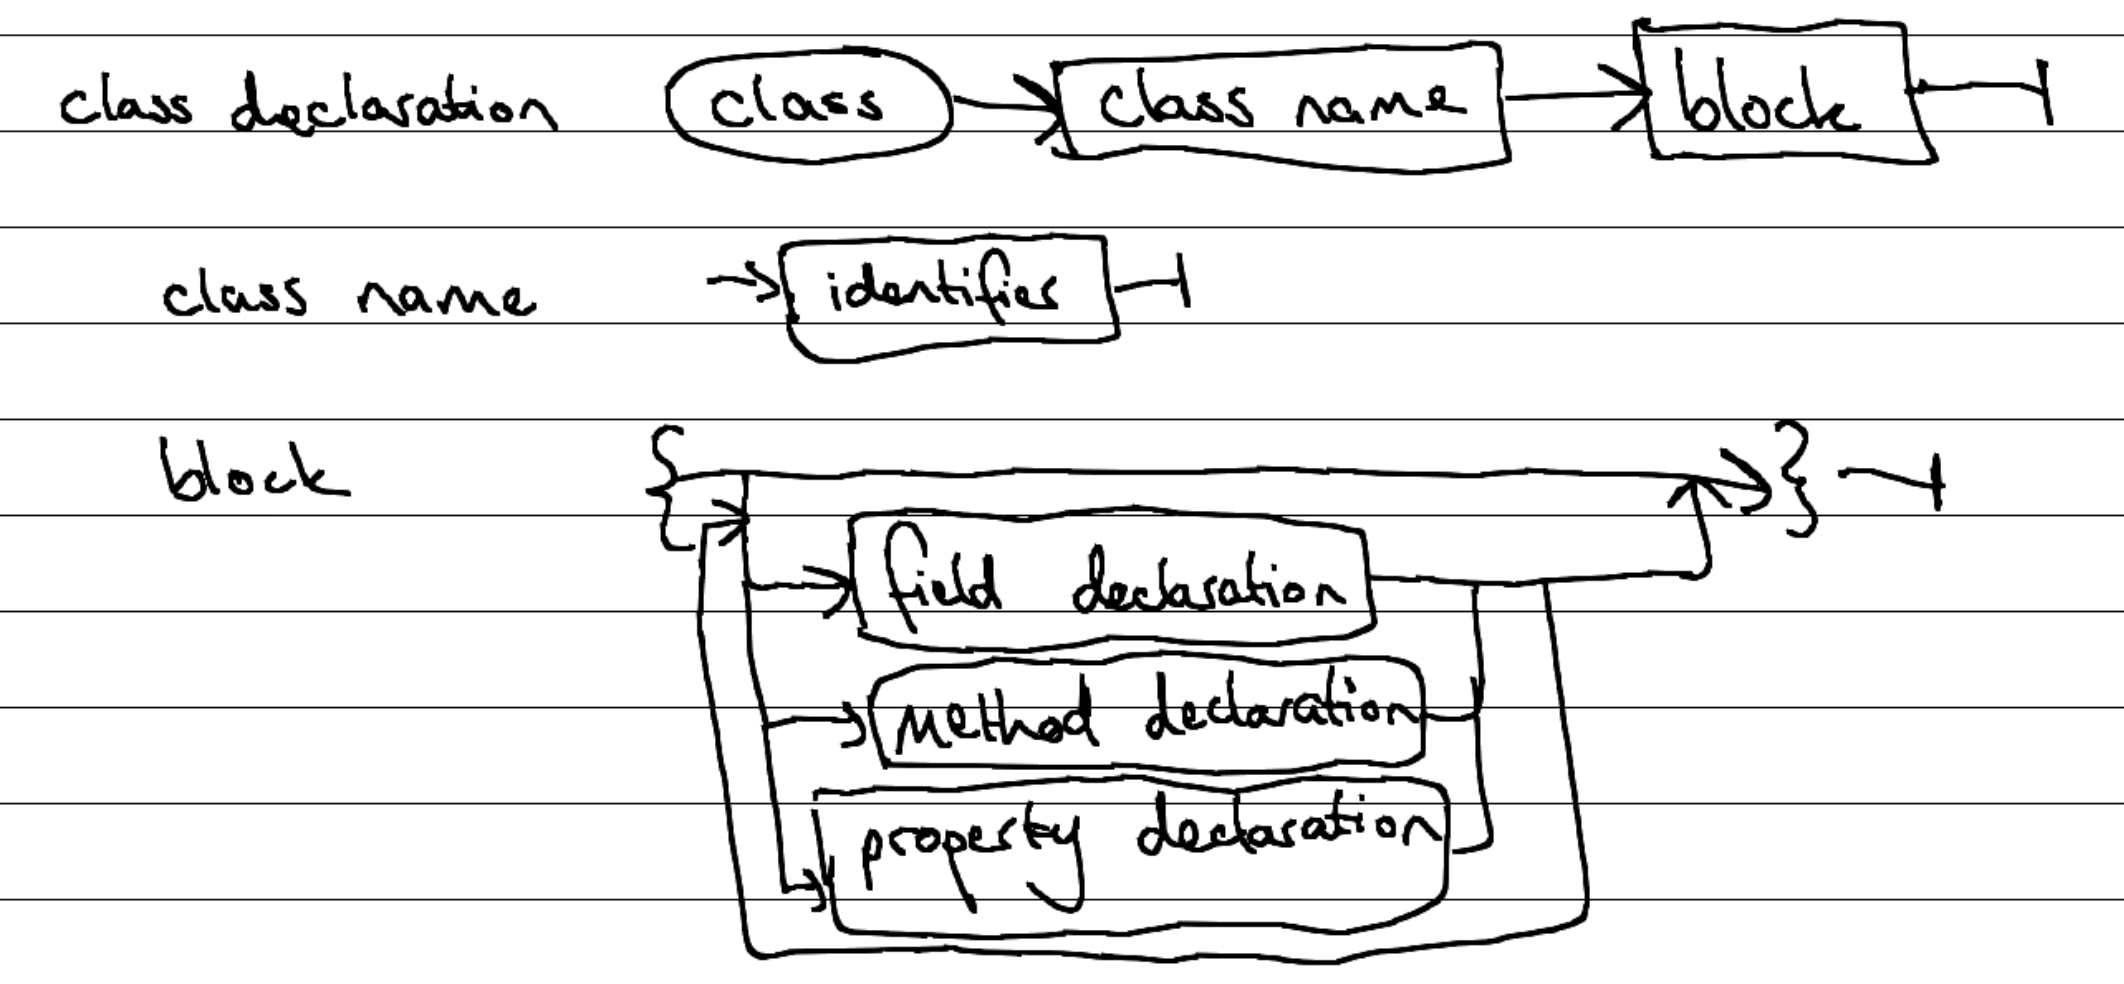 class declaration class class name block
class name identifier
block { }
field declaration
method declaration
property declaration